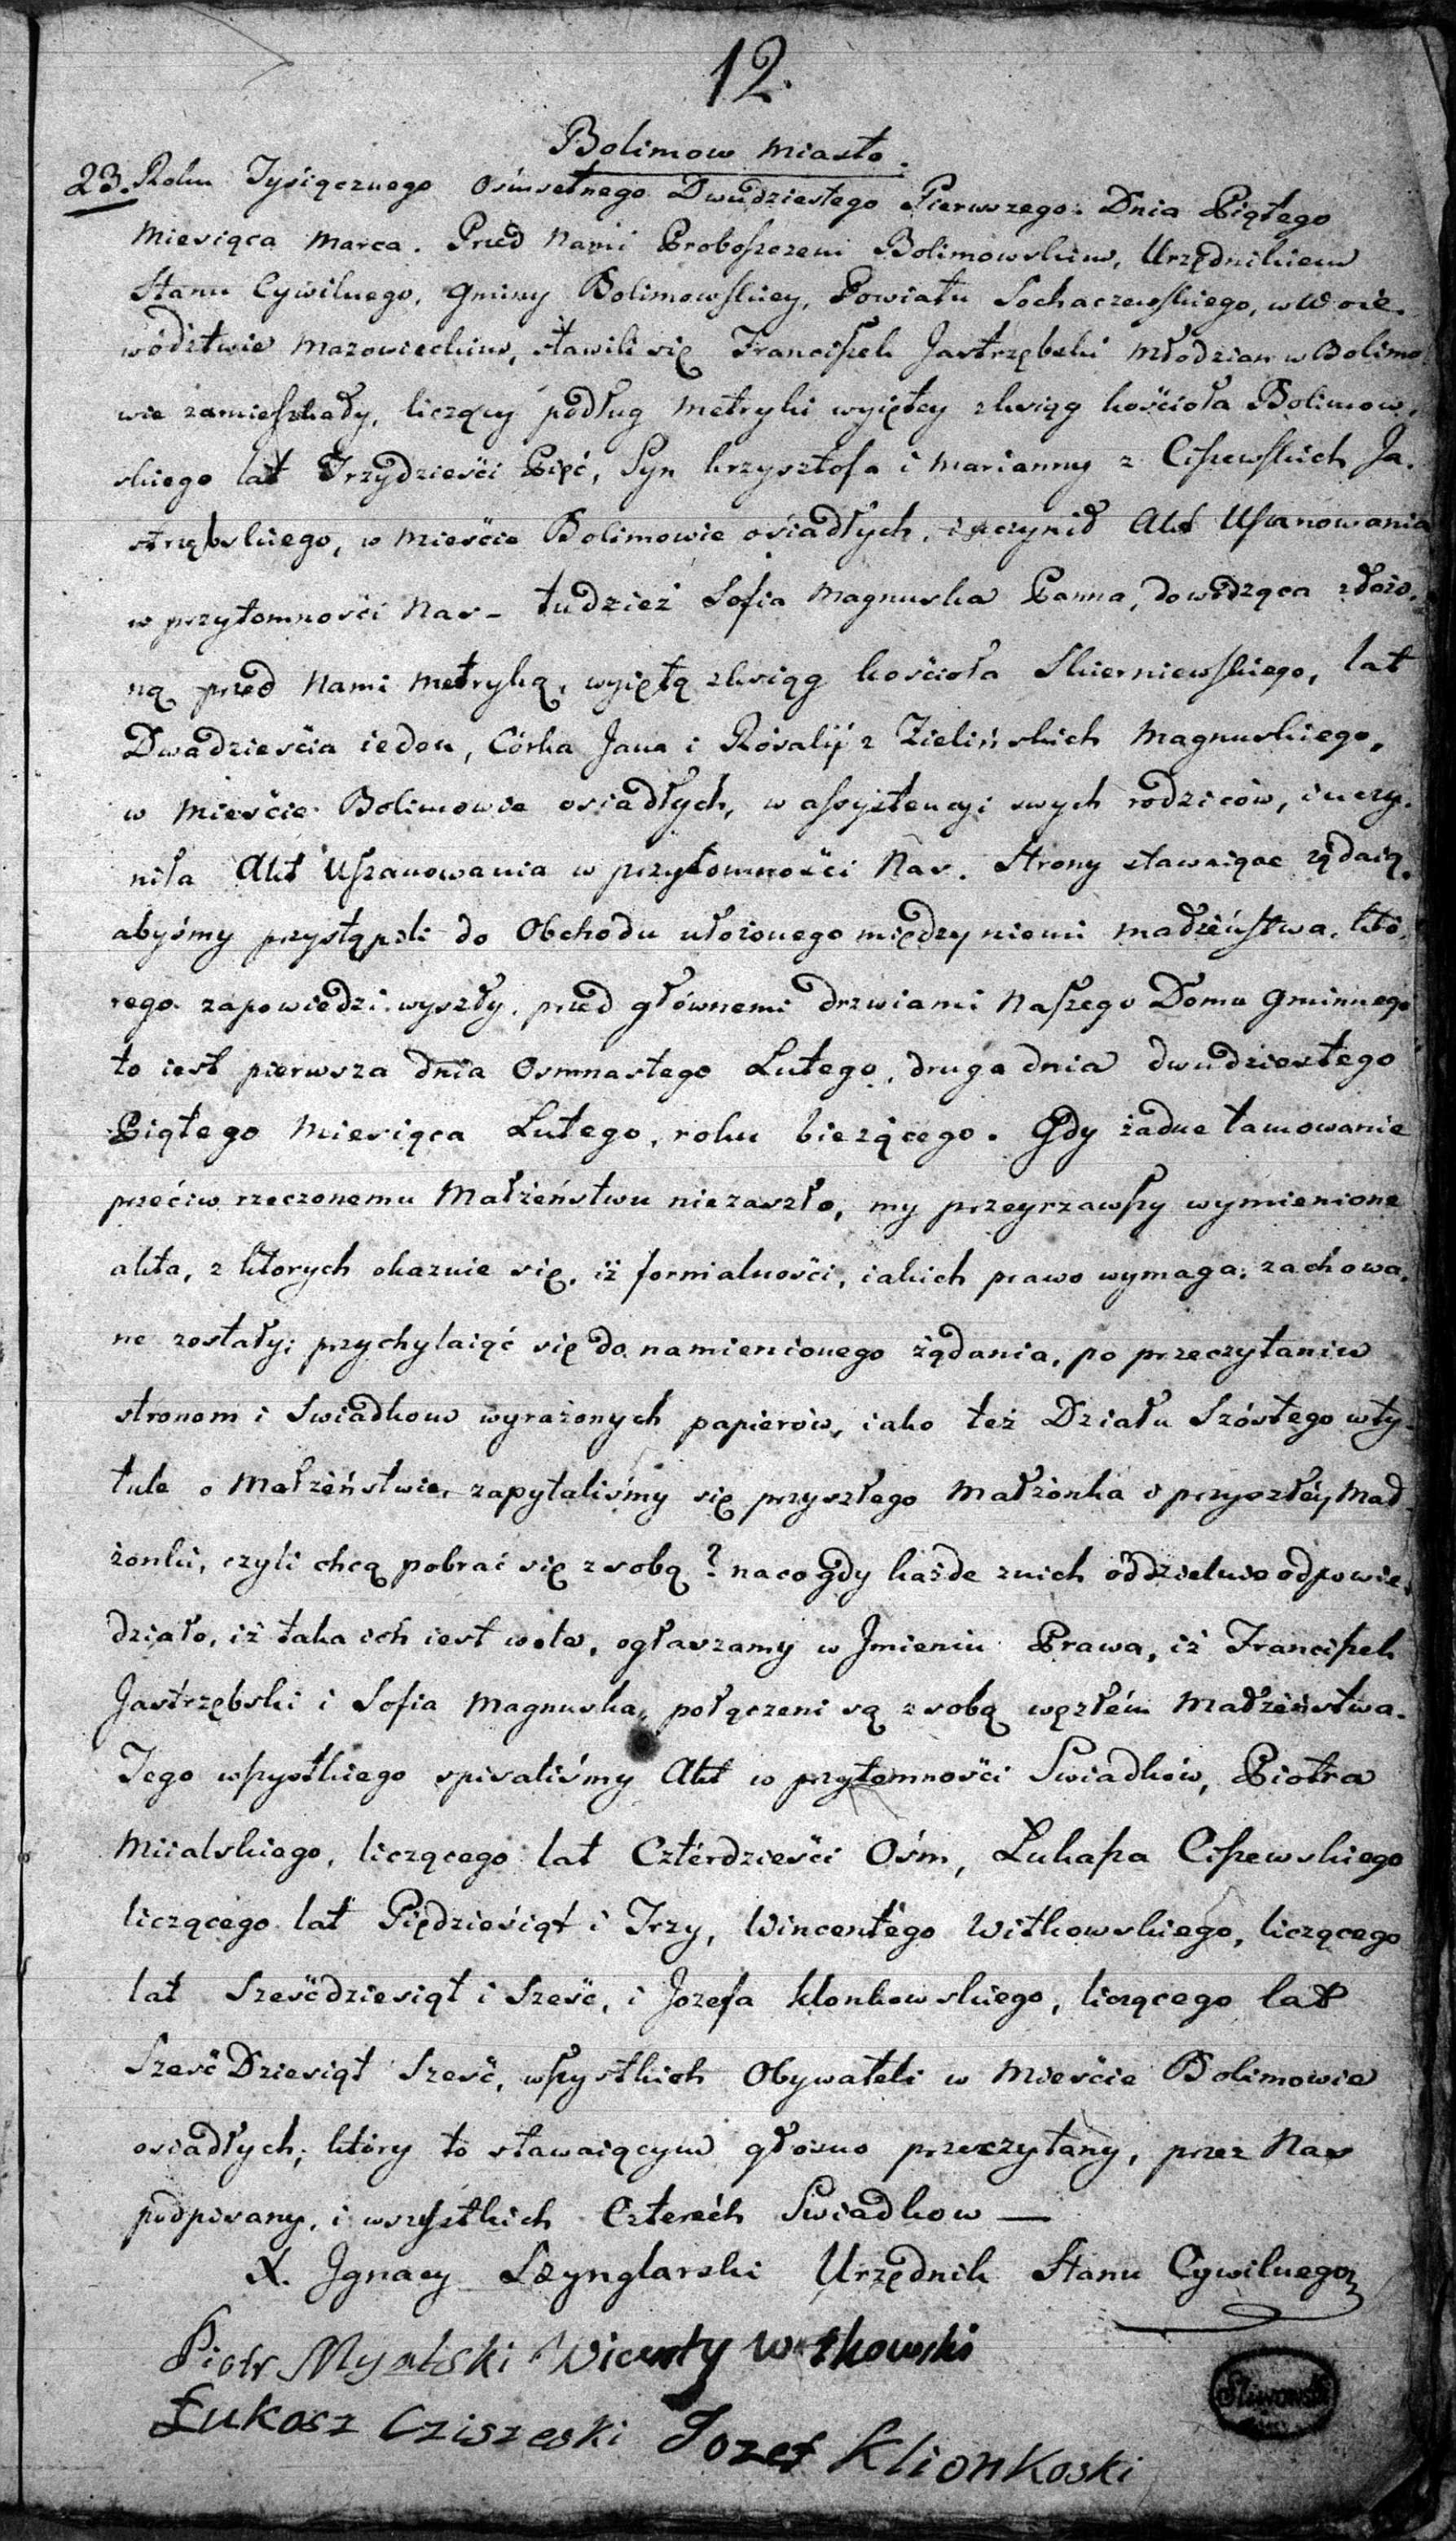 12.
Bolimow Miasto.
23. Roku Tysiącznego Osmsetnego Dwudziestego Pierwszego. Dnia Piątego
Miesiąca Marca. Przed Nami Proboszczem Bolimowskim, Urzędnikiem
Stanu Cywilnego, Gminy Bolimowskiey, Powiatu Sochaczewskiego, w Woie-
wództwie Mazowieckim, stawili się Franciszek Jastrzębski Młodzian w Bolimo-
wie zamieszkały, liczący podług Metryki wyiętey z ksiąg kościoła Bolimow-
skiego lat Trzydzieści Pięć, Syn Krzysztofa i Marianny z Ciszewskich Ja-
strzębskiego, w Mieście Bolimowie osiadłych, i uczynił Akt Uszanowania
w przytomności Nas – tudzież Sofia Magnuska Panna, dowodząca złożo-
ną przed Nami Metryką, wyiętą z ksiąg kościoła Skierniewskiego, lat
Dwadzieścia ieden, Córka Jana i Rosalij z Zielińskich Magnuskiego,
w Mieście Bolimowie osiadłych, w assystencyi swych rodziców, i uczy-
niła Akt Uszanowania w przytomności Nas. Strony stawaiące żądaią,
abyśmy przystąpili do Obchodu ułożonego między niemi małżeństwa, któ-
rego zapowiedzi wyszły, przed głównemi drzwiami Naszego Domu Gminnego
to iest pierwsza dnia Osmnastego Lutego, druga dnia dwudziestego
Piątego Miesiąca Lutego, roku bieżącego. Gdy żadne tamowanie
przeciw rzeczonemu Małżeństwu niezaszło, my przeyrzawszy wymienione
akta, z ktorych okazuie się, iż formalności, iakich prawo wymaga, zachowa-
ne zostały; przychylaiąc się do namienionego żądania, po przeczytaniu
stronom i Swiadkom wyrażonych papierów, iako też Działu Szóstego w ty-
tule o Małżeństwie, zapytaliśmy się przyszłego Małżonka i przyszłéy Mał-
żonki, czyli chcą pobrać się z sobą? na co gdy każde z nich oddzielnie odpowie-
działo, iż taka ich iest wola, ogłaszamy w Jmieniu Prawa, iż Franciszek
Jastrzębski i Sofia Magnuska, połączeni są z sobą węzłém Małżeństwa.
Tego wszystkiego spisaliśmy Akt w przytomności Swiadków, Piotra
Miialskiego, liczącego lat Czterdzieści Ośm, Łukasza Ciszewskiego
liczącego lat Pięćdziesiąt i Trzy, Wincentego Witkowskiego, liczącego
lat Sześćdziesiąt i Sześć, i Jozefa Klonkowskiego, liczącego lat
Sześć Dziesiąt Sześć, wszystkich Obywateli w Mieście Bolimowie
osiadłych; który to stawaiącym głośno przeczytany, przez Nas
podpisany, i wszystkich Czterech Swiadkow —
X. Jgnacy Szynglarski Urzędnik Stanu Cywilnego
Piotr Myalski Wicenty Witkowski
Łukosz Cziszeski Jozef Klionkoski